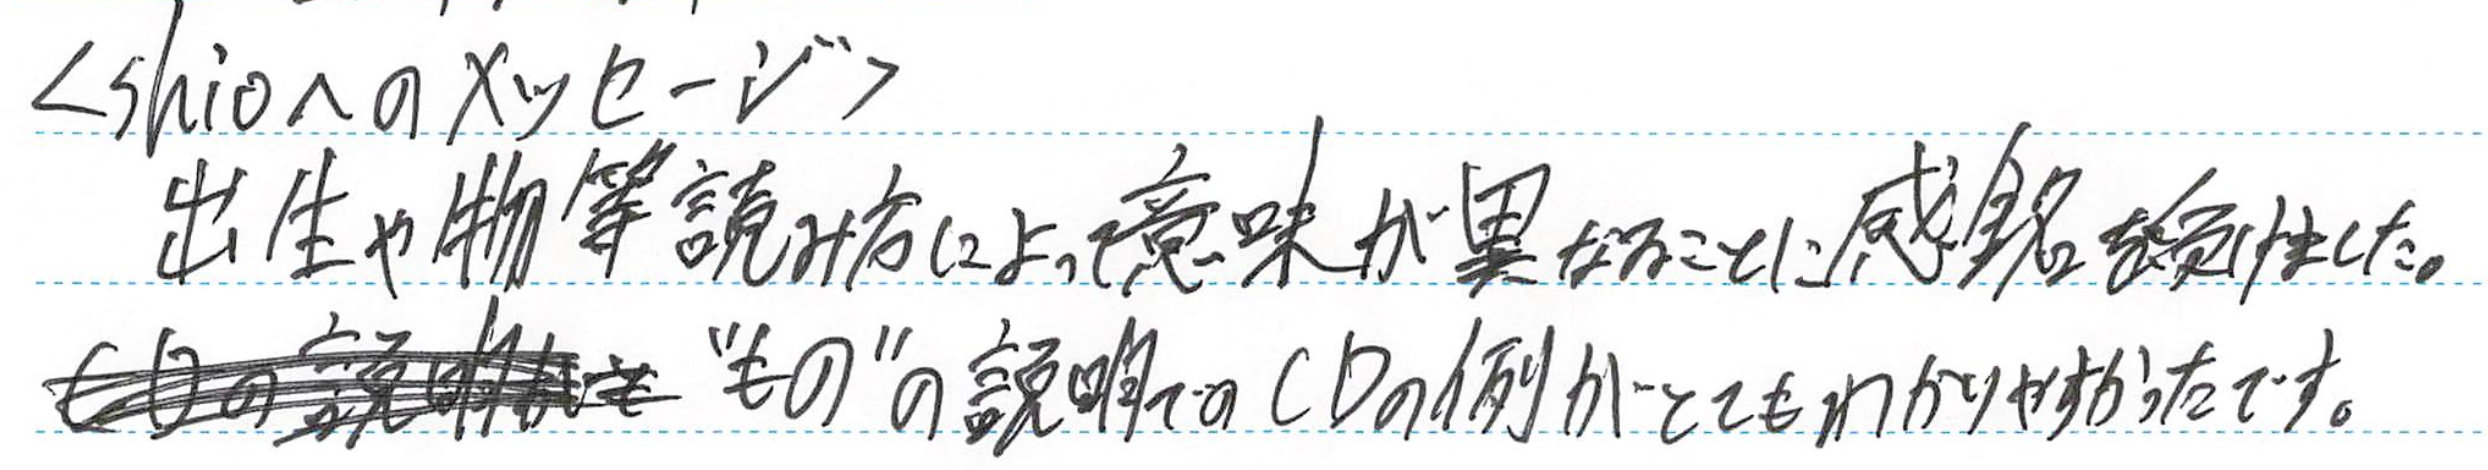 <shioへのメッセージ>
出生や物等読み方によって意味が異なることに感銘を受けました。
"もの"の説明でのCDの例がとてもわかりやすかったです。